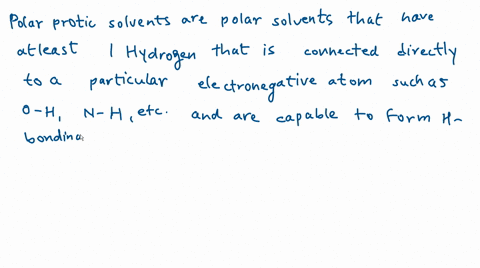 Polar protic solvents are polar solvents that have
atleast 1 Hydrogen that is connected directly
to a particular electronegative atom such as
O-H, N-H, etc. and are capable to form H-
bonding